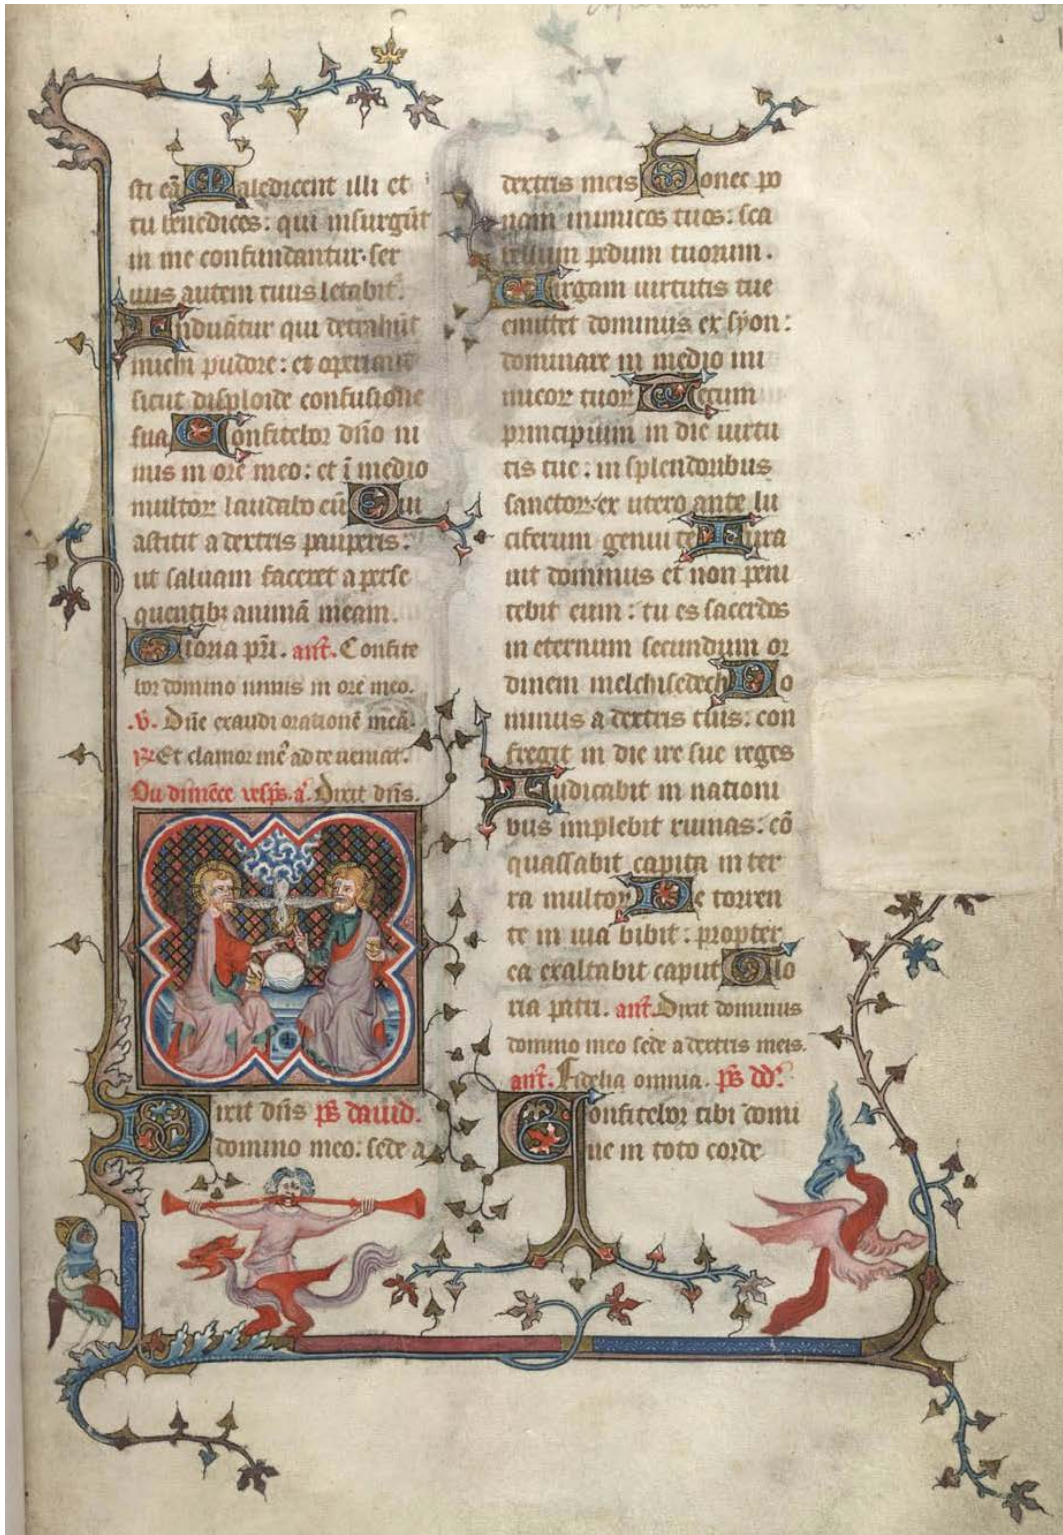 sti eã Maledicent illi et
tu benedices: qui insurgũt
in me confundantur. ser
uus autem tuus letabit'.
Induãtur qui detrahũt
michi pudore: et operiant'
sicut disploide confusione
sua Confitebor dño ni
mis in ore meo: et ĩ medio
multoꝝ laudabo eũ Qui
astitit a dextris pauperis:
ut saluam faceret a perse
quentibꝫ animã meam.
Gloria pr̃i. añt. Confite
bor domino nimis in ore meo.
.℣. Dñe exaudi orationẽ meã.
℟ Et clamor me' ad te ueniat.
Du dimẽce vesp̃s. a'. Dixit dñs.
Dixit dñs pš dauid.
domino meo: sede a
dextris meis Donec po
nam inimicos tuos: sca
bellum pedum tuorum.
Virgam uirtutis tue
emittet dominus ex syon:
dominare in medio ini
micoꝝ tuoꝝ Tecum
principium in die uirtu
tis tue: in splendoribus
sanctoꝝ: ex utero ante lu
ciferum genui te Iura
uit dominus et non peni
tebit eum: tu es sacerdos
in eternum secundum or
dinem melchisedech Do
minus a dextris tuis: con
fregit in die ire sue reges
Iudicabit in nationi
bus implebit ruinas: cõ
quassabit capita in ter
ra multoꝝ De torren
te in uia bibit: propter
ea exaltabit caput Glo
ria patri. añt. Dixit dominus
domino meo sede a dextris meis.
añt. Fidelia omnia. pš dd'.
Confitebor tibi domi
ne in toto corde